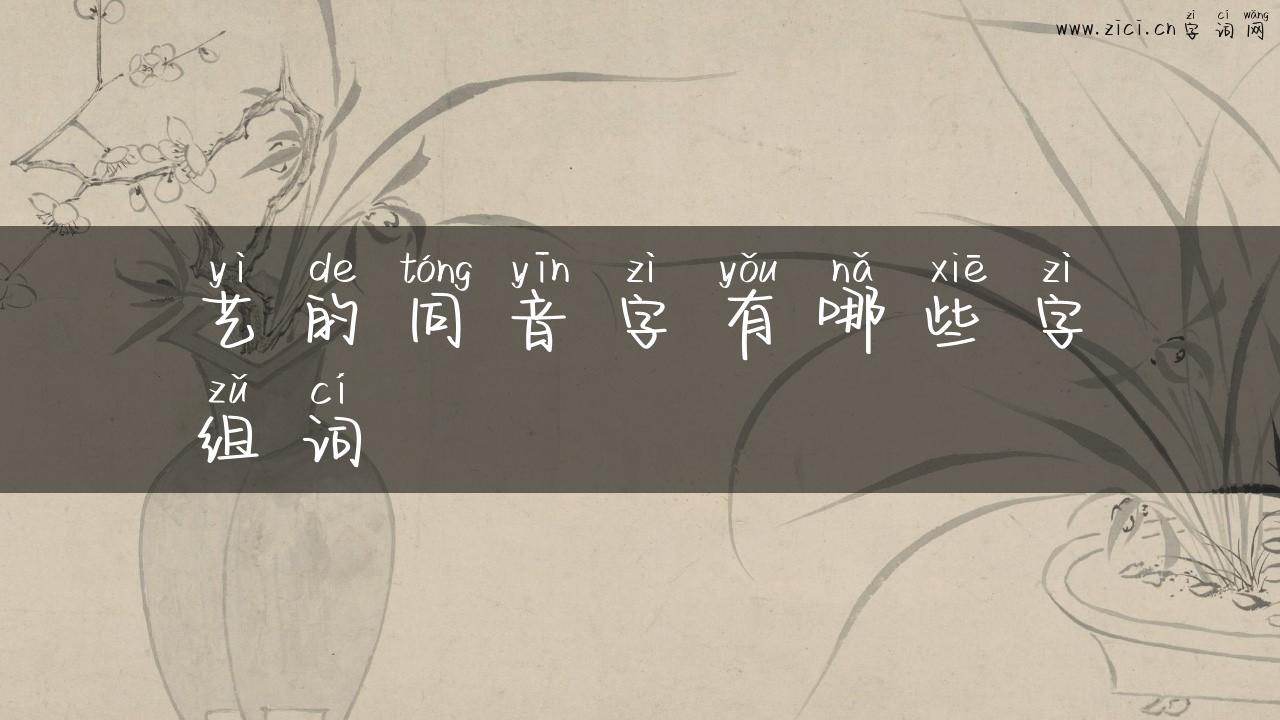 zì cí wǎng
www.zici.cn 字词网
yì de tóng yīn zì yǒu nǎ xiē zì
艺的同音字有哪些字
zǔ cí
组词